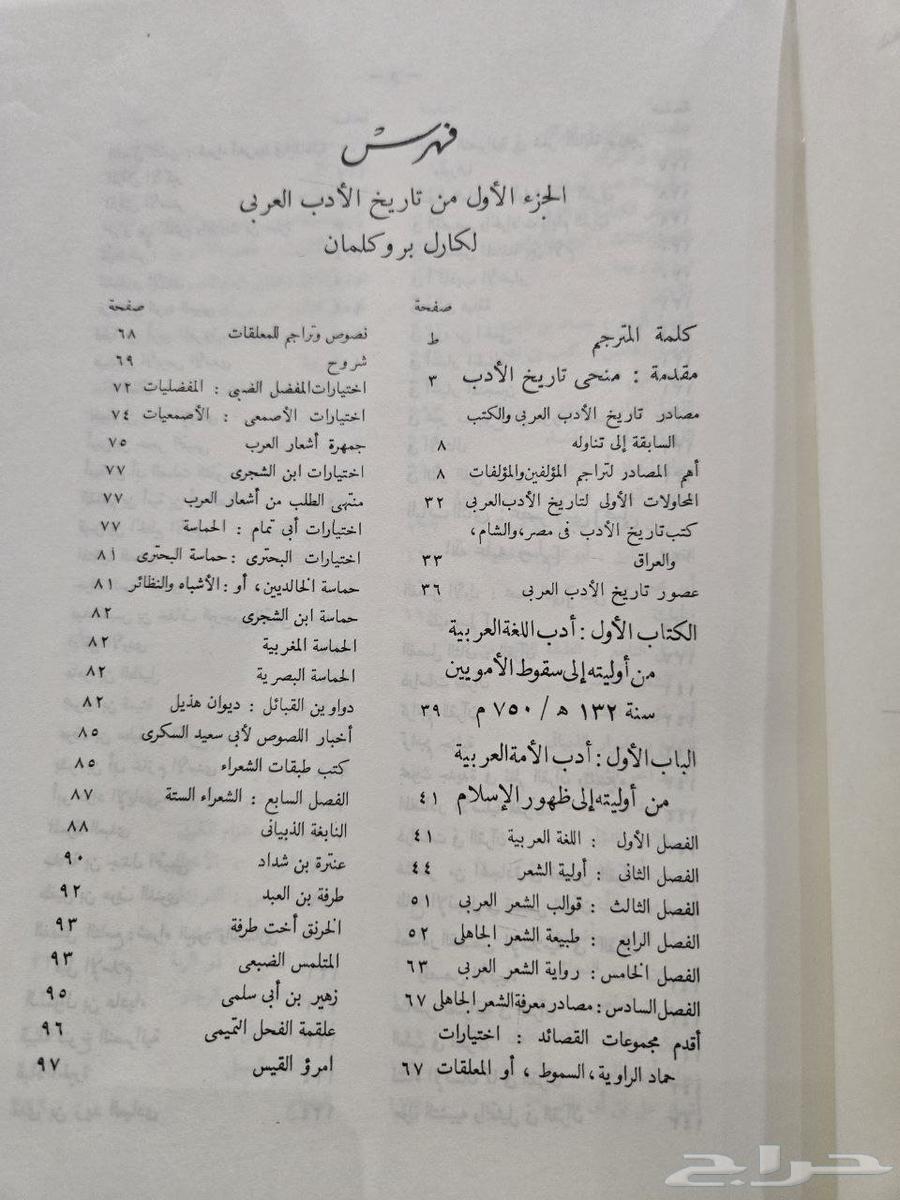 فهرس
الجزء الأول من تاريخ الأدب العربى
لكارل بروكلمان
صفحة
كلمة المترجم ط
مقدمة : منحى تاريخ الأدب ٣
مصادر تاريخ الأدب العربى والكتب
السابقة إلى تناوله ٨
أهم المصادر لتراجم المؤلفين والمؤلفات ٨
المحاولات الأولى لتاريخ الأدب العربى ٣٢
كتب تاريخ الأدب فى مصر، والشام،
والعراق ٣٣
عصور تاريخ الأدب العربى ٣٦
الكتاب الأول : أدب اللغة العربية
من أوليته إلى سقوط الأمويين
سنة ١٣٢ ه / ٧٥٠ م ٣٩
الباب الأول : أدب الأمة العربية
من أوليته إلى ظهور الإسلام ٤١
الفصل الأول : اللغة العربية ٤١
الفصل الثانى : أولية الشعر ٤٤
الفصل الثالث : قوالب الشعر العربى ٥١
الفصل الرابع : طبيعة الشعر الجاهلى ٥٢
الفصل الخامس : رواية الشعر العربى ٦٣
الفصل السادس : مصادر معرفة الشعر الجاهلى ٦٧
أقدم مجموعات القصائد : اختيارات
حماد الراوية ، السموط ، أو المعلقات ٦٧
صفحة
نصوص وتراجم للمعلقات ٦٨
شروح ٦٩
اختيارات المفضل الضبى : المفضليات ٧٢
اختيارات الأصمعى : الأصمعيات ٧٤
جمهرة أشعار العرب ٧٥
اختيارات ابن الشجرى ٧٧
منتهى الطلب من أشعار العرب ٧٧
اختيارات أبى تمام : الحماسة ٧٧
اختيارات البحترى : حماسة البحترى ٨١
حماسة الخالديين ، أو : الأشباه والنظائر ٨١
حماسة ابن الشجرى ٨٢
الحماسة المغربية ٨٢
الحماسة البصرية ٨٢
دواوين القبائل : ديوان هذيل ٨٢
أخبار اللصوص لأبى سعيد السكرى ٨٥
كتب طبقات الشعراء ٨٥
الفصل السابع : الشعراء الستة ٨٧
النابغة الذبيانى ٨٨
عنترة بن شداد ٩٠
طرفة بن العبد ٩٢
الخرنق أخت طرفة ٩٣
المتلمس الضبعى ٩٣
زهير بن أبى سلمى ٩٥
علقمة الفحل التميمى ٩٦
امرؤ القيس ٩٧
حراج